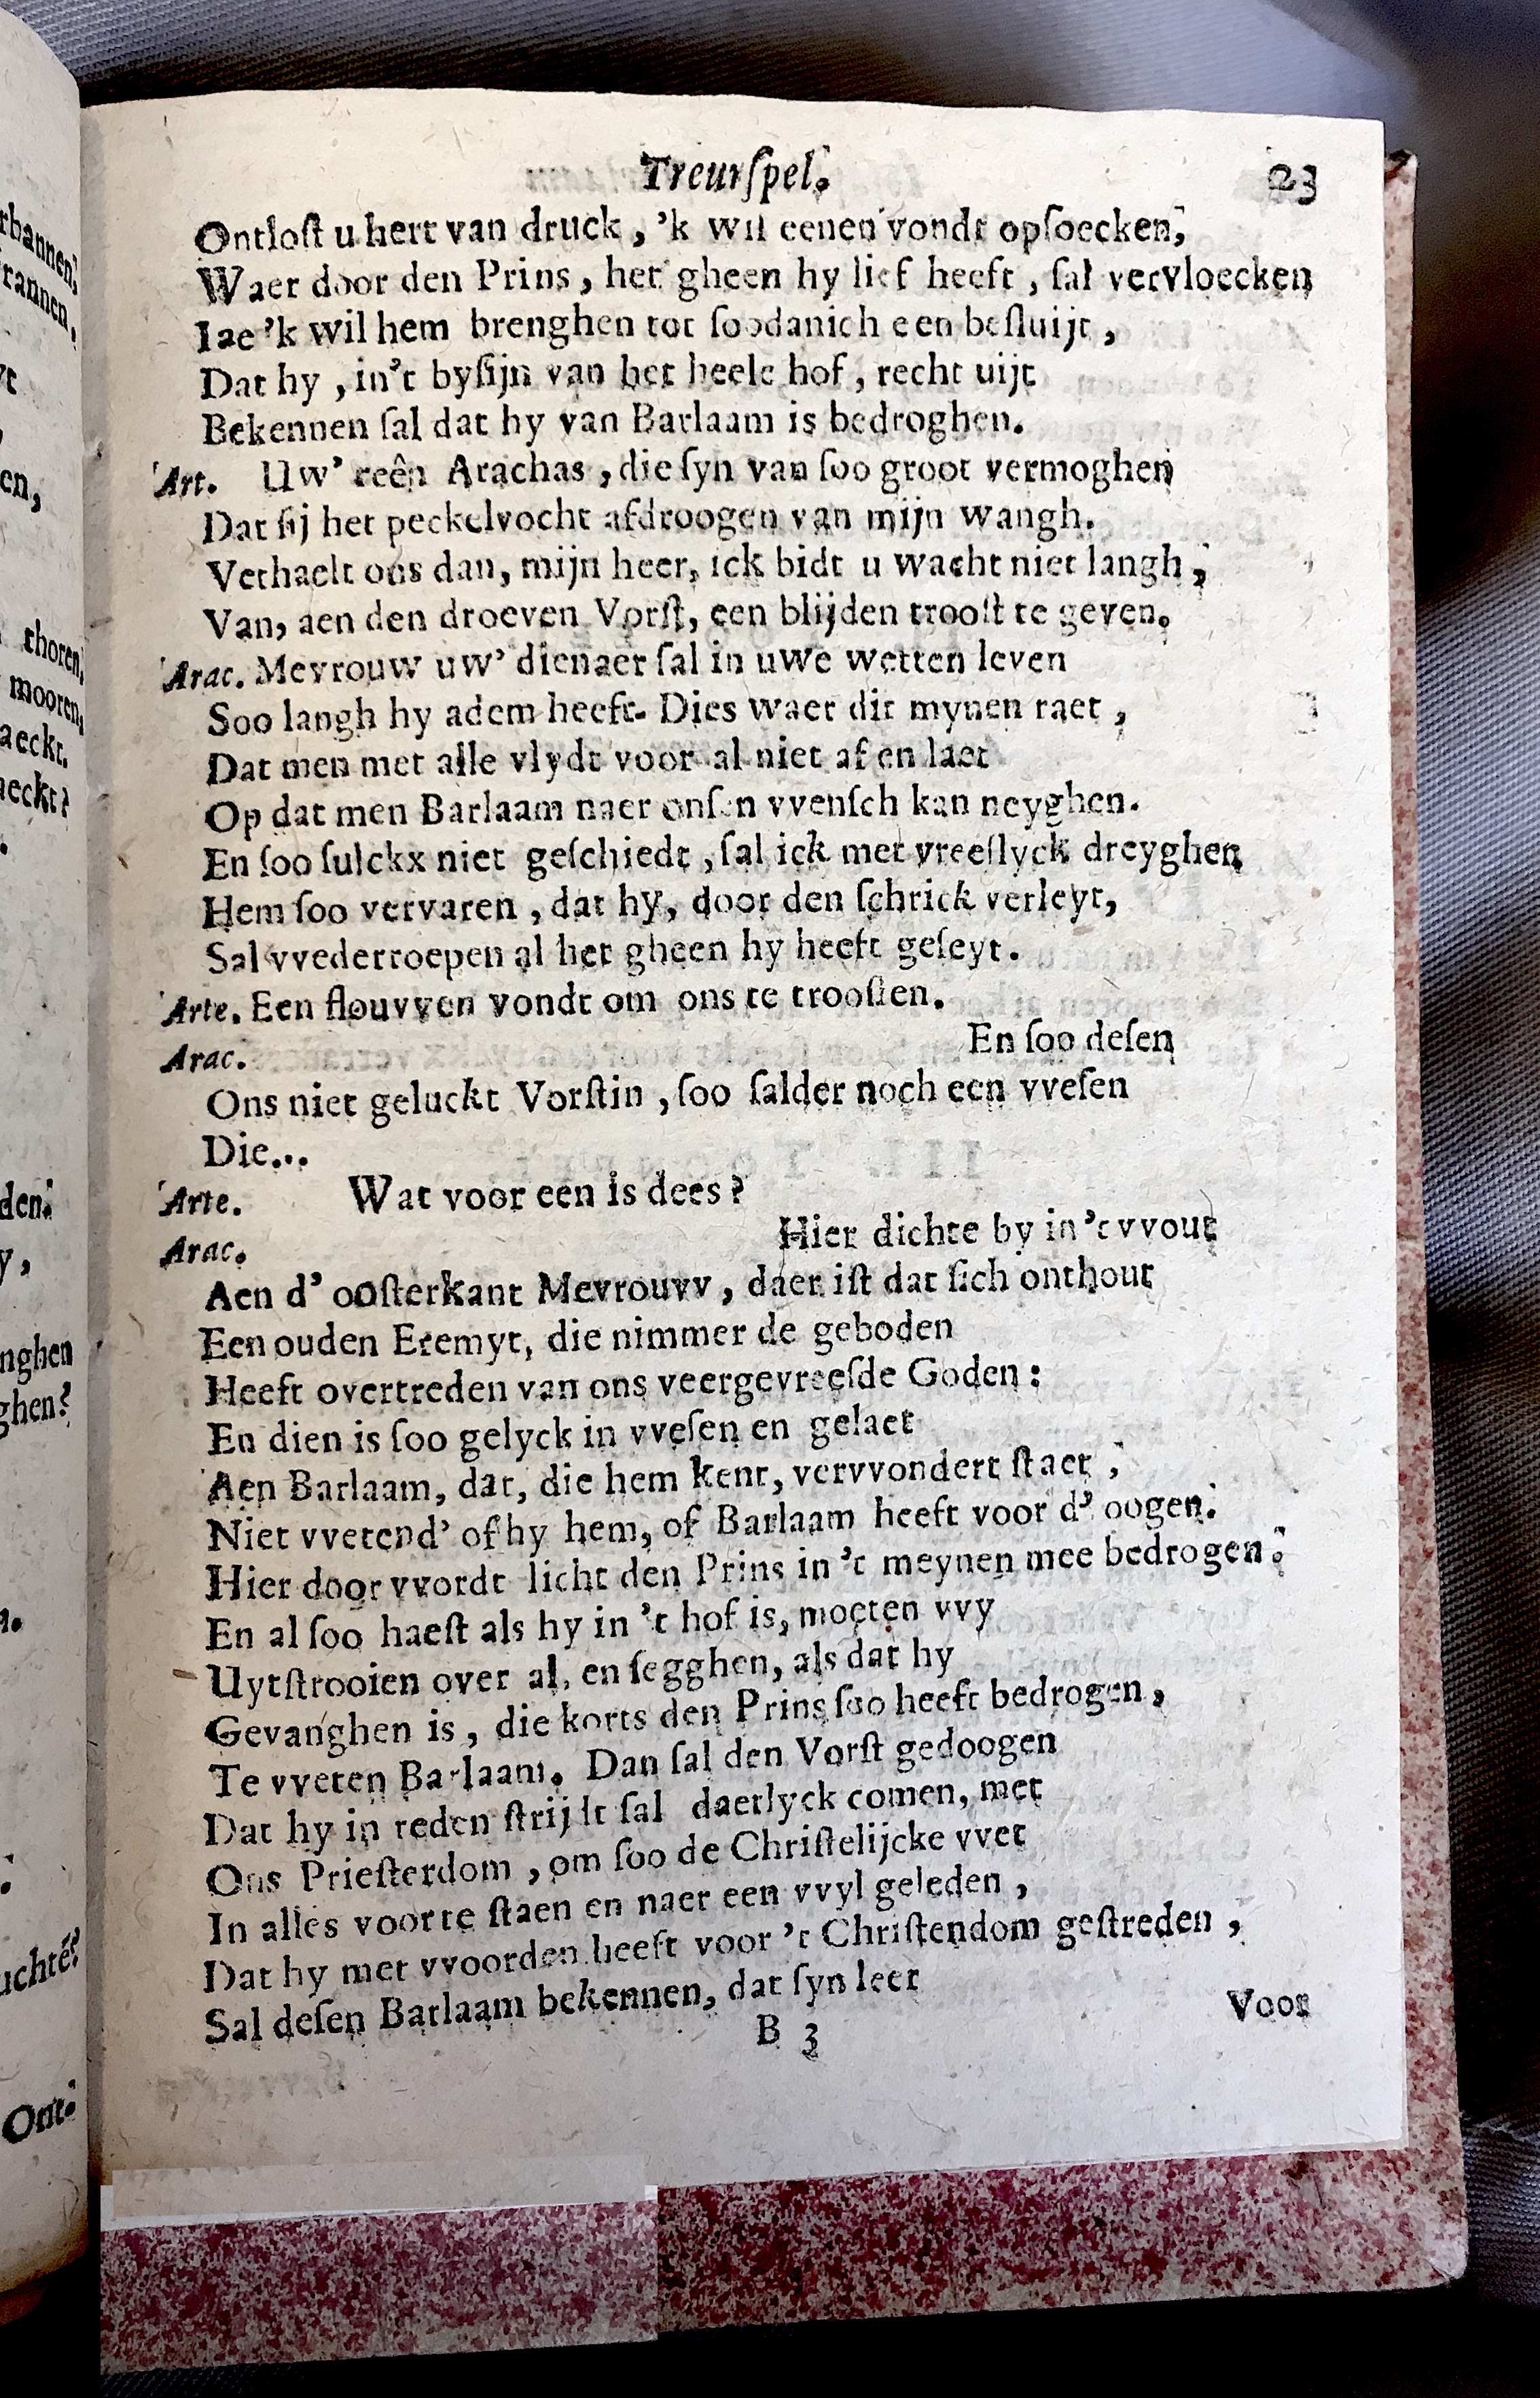 Treurſpel. 23
Ontloſt u hert van druck, 'k wil eenen vondt opſoecken,
Waer door den Prins, het gheen hy lief heeft, ſal vervloecken
Iae 'k wil hem brenghen tot ſoodanich een beſluijt,
Dat hy, in't byſijn van het heele hof, recht uijt
Bekennen ſal dat hy van Barlaam is bedroghen.
Art. Uw' reên Arachas, die ſyn van ſoo groot vermoghen
Dat ſij het peckelvocht afdroogen van mijn wangh.
Verhaelt ons dan, mijn heer, ick bidt u wacht niet langh,
Van, aen den droeven Vorſt, een blijden trooſt te geven.
Arac. Mevrouw uw' dienaer ſal in uwe wetten leven
Soo langh hy adem heeft. Dies waer dit mynen raet,
Dat men met alle vlydt voor al niet af en laet
Op dat men Barlaam naer onſen vvenſch kan neyghen.
En ſoo ſulckx niet geſchiedt, ſal ick met vreeſlyck dreyghen
Hem ſoo vervaren, dat hy, door den ſchrick verleyt,
Sal vvederroepen al het gheen hy heeft geſeyt.
Arte. Een flouvven vondt om ons te trooſten.
En ſoo deſen
Arac.
Ons niet geluckt Vorſtin, ſoo ſalder noch een vveſen
Die...
Arte. Wat voor een is dees?
Hier dichte by in't vvout
Arac.
Aen d' ooſterkant Mevrouvv, daer iſt dat ſich onthout
Een ouden Eremyt, die nimmer de geboden
Heeft overtreden van ons veergevreeſde Goden:
En dien is ſoo gelyck in vveſen en gelaet
Aen Barlaam, dat, die hem kent, vervvondert ſtaet,
Niet vvetend' of hy hem, of Barlaam heeft voor d' oogen.
Hier door vvordt licht den Prins in 't meynen mee bedrogen.
En al ſoo haeſt als hy in 't hof is, moeten vvy
Uytſtrooien over al, en ſegghen, als dat hy
Gevanghen is, die korts den Prins ſoo heeft bedrogen,
Te vveten Barlaam. Dan ſal den Vorſt gedoogen
Dat hy in reden ſtrijdt ſal daerlyck comen, met
Ons Prieſterdom, om ſoo de Chriſtelijcke vvet
In alles voor te ſtaen en naer een vvyl geleden,
Dat hy met vvoorden heeft voor 't Chriſtendom geſtreden,
Sal deſen Barlaam bekennen, dat ſyn leer
B 3 Voor
rbannen,
rannen,
en,
thoren,
mooren,
aeckt.
aeckt?
den.
y,
nghen
ghen?
uchtè?
Ont.